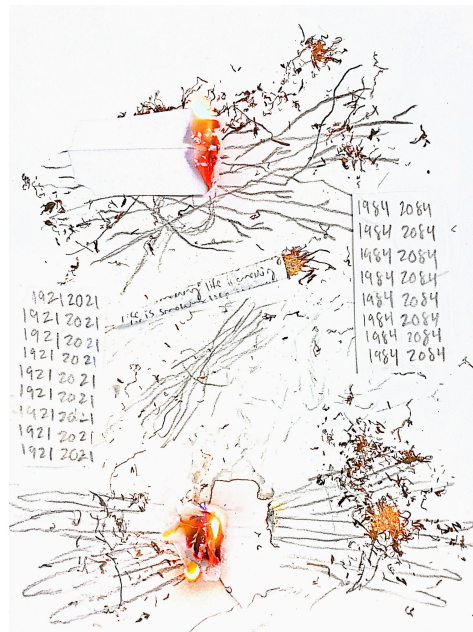 1984 2084
1984 2084
1984 2084
1984 2084
1984 2084
1984 2084
1984 2084
1984 2084
life is smoking
life is smoking
1921 2021
1921 2021
1921 2021
1921 2021
1921 2021
1921 2021
1921 2021
1921 2021
1921 2021